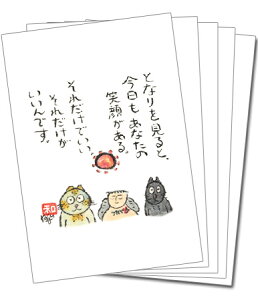 となりを見ると、
今日もあなたの
笑顔がある。
それだけでいい、
それだけが
いいんです。